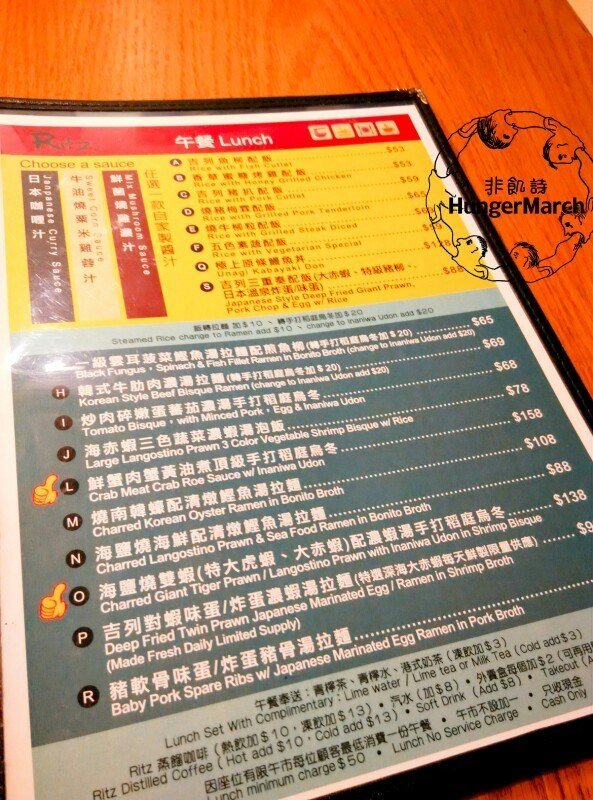 Ritz
午餐 Lunch
Choose a sauce
任選一款自家製醬汁
日本咖喱汁
Janpanese Curry Sauce
牛油燒粟米雞蓉汁
Sweet Corn Sauce
鮮菌燒雞濃汁
Mix Mushroom Sauce
A 吉列魚柳配飯 $53
Rice with Fish Cutlet
B 香草蜜糖烤雞配飯 $53
Rice with Honey Grilled Chicken
C 吉列豬扒配飯 $59
Rice with Pork Cutlet
D 燒豬梅雲配飯
Rice with Grilled Pork Tenderloin
E 燒牛柳粒配飯
Rice with Grilled Steak Diced
F 五色素蔬配飯
Rice with Vegetarian Special
Q 極上原條鰻魚丼
Unagi Kabayaki Don
S 吉列三重奏配飯(大赤蝦、特級豬柳、
日本溫泉炸蛋/味蛋) $88
Japanese Style Deep Fried Giant Prawn,
Pork Chop & Egg w/ Rice
飯轉拉麵 加$10 ~ 轉手打稻庭烏冬加$20
Steamed Rice change to Ramen add $10 ~ change to Inaniwa Udon add $20
級雙耳菠菜鰹魚湯拉麵配煎魚柳(轉手打稻庭烏冬加$20) $65
Black Fungus, Spinach & Fish Fillet Ramen in Bonito Broth (change to Inaniwa Udon add $20)
H 韓式牛肋肉濃湯拉麵(轉手打稻庭烏冬加$20) $69
Korean Style Beef Bisque Ramen (change to Inaniwa Udon add $20)
I 炒肉碎嫩蛋蕃茄濃湯手打稻庭烏冬 $68
Tomato Bisque, with Minced Pork, Egg & Inaniwa Udon
J 海赤蝦三色蔬菜濃蝦湯泡飯 $78
Large Langostino Prawn 3 Color Vegetable Shrimp Bisque w/ Rice
L 鮮蟹肉蟹黃油煮頂級手打稻庭烏冬 $158
Crab Meat Crab Roe Sauce w/ Inaniwa Udon
M 燒南韓蠔配清燉鰹魚湯拉麵 $108
Charred Korean Oyster Ramen in Bonito Broth
N 海鹽燒海鮮配清燉鰹魚湯拉麵 $88
Charred Langostino Prawn & Sea Food Ramen in Bonito Broth
O 海鹽燒雙蝦(特大虎蝦、大赤蝦)配濃蝦湯手打稻庭烏冬 $138
Charred Giant Tiger Prawn / Langostino Prawn with Inaniwa Udon in Shrimp Bisque
P 吉列對蝦味蛋/炸蛋濃蝦湯拉麵(特選深海大赤蝦每天鮮製限量供應)
Deep Fried Twin Prawn Japanese Marinated Egg / Ramen in Shrimp Broth
(Made Fresh Daily Limited Supply)
R 豬軟骨味蛋/炸蛋豬骨湯拉麵
Baby Pork Spare Ribs w/ Japanese Marinated Egg Ramen in Pork Broth
午餐奉送：青檸茶、青檸水、港式奶茶 (凍飲加$3)
Lunch Set With Complimentary : Lime water / Lime tea or Milk Tea (Cold add $3)
Ritz 蒸餾咖啡 (熱飲加$10，凍飲加$13) • 汽水 (加$8) • 外賣盒每個加$2
Ritz Distilled Coffee (Hot add $10、Cold add $13) • Soft Drink (Add $8) • Takeout
因座位有限午市每位顧客最低消費一份午餐 • 午市不設加一 • 只收現金
Lunch minimum charge $50 • Lunch No Service Charge • Cash Only
非飢詩
HungerMarch